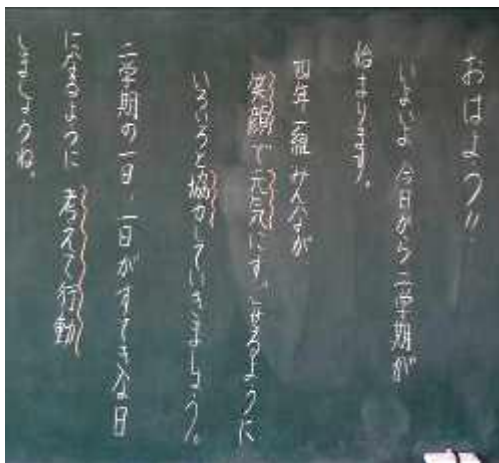 おはよう!!
いよいよ 今日から二学期が
始まります。
四年一組 みんなが
笑顔で元気にすごせるように
いろいろと協力していきましょう。
二学期の一日、一日がすてきな日
になるように 考えて行動
しましょうね。